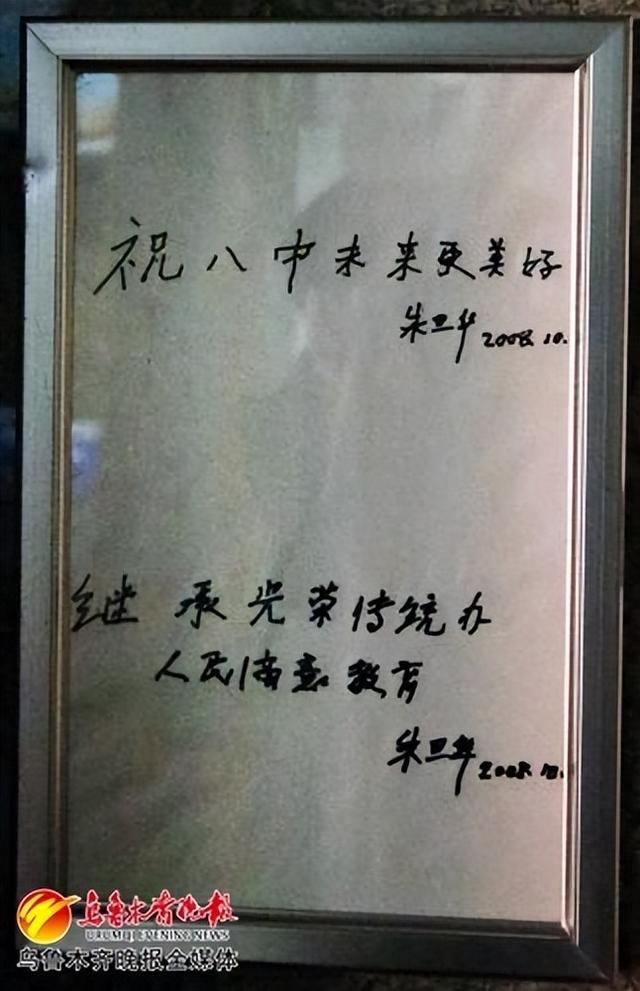 祝八中未来更美好
朱卫华 2008.10.
继承光荣传统办
人民满意教育
朱卫华 2008.10.
乌鲁木齐晚报
URUMQI EVENING NEWS
乌鲁木齐晚报全媒体